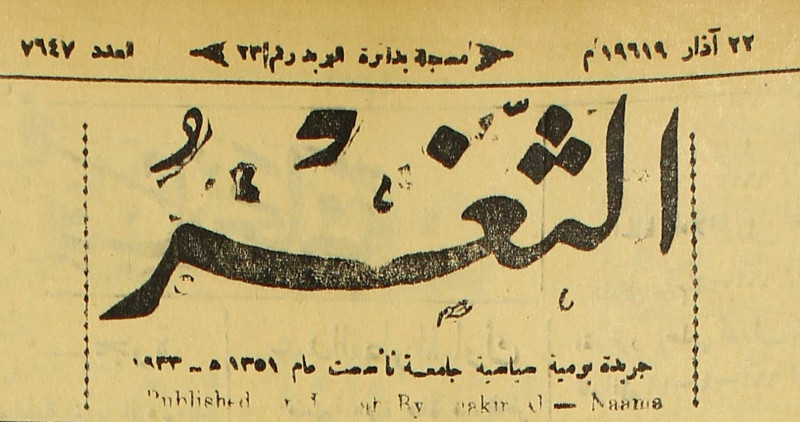 ٢٢ آذار ١٩٦١٩م مسجلة بدائرة البريد رقم ٢٣ العدد ٧٦٤٧
الثَّغْرُ
جريدة يومية سياسية جامعة تأسست عام ١٣٥١ ه ـ ١٩٣٣
Published By Al — Naama